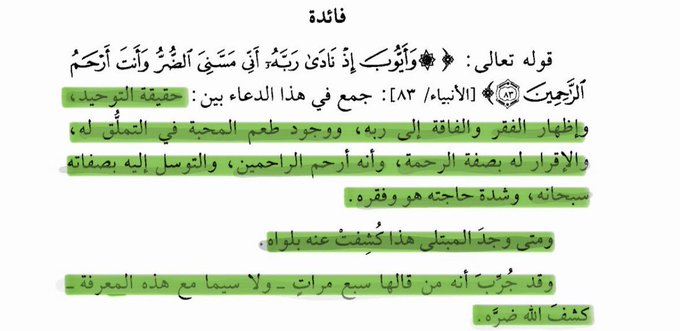 فائدة
قوله تعالى: ﴿۞ وَأَيُّوبَ إِذْ نَادَىٰ رَبَّهُۥٓ أَنِّي مَسَّنِيَ ٱلضُّرُّ وَأَنتَ أَرْحَمُ
ٱلرَّٰحِمِينَ ۝٨٣﴾ [الأنبياء/ ٨٣]: جمع في هذا الدعاء بين: حقيقة التوحيد،
وإظهار الفقر والفاقة إلى ربه، ووجود طعم المحبة في التملُّق له،
والإقرار له بصفة الرحمة، وأنه أرحم الراحمين، والتوسل إليه بصفاته
سبحانه، وشدة حاجته هو وفقره.
ومتى وجدَ المبتلى هذا كُشِفتْ عنه بلواه.
وقد جُرِّبَ أنه من قالها سبع مراتٍ ــ ولا سيما مع هذه المعرفة ــ
كشفَ الله ضرَّه.